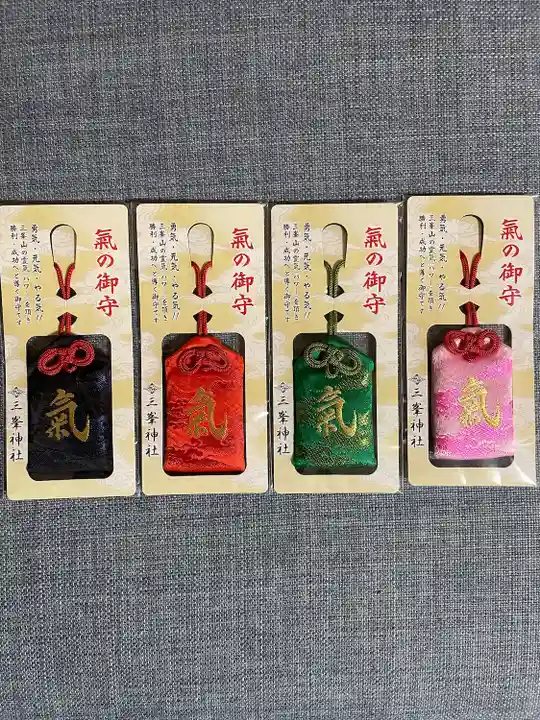 氣の御守
勇気・元気・やる気!!
三峯山の霊気(パワー)を頂き
勝利・成功へと導く御守です
氣
三峯神社
氣の御守
勇気・元気・やる気!!
三峯山の霊気(パワー)を頂き
勝利・成功へと導く御守です
氣
三峯神社
氣の御守
勇気・元気・やる気!!
三峯山の霊気(パワー)を頂き
勝利・成功へと導く御守です
氣
三峯神社
氣の御守
勇気・元気・やる気!!
三峯山の霊気(パワー)を頂き
勝利・成功へと導く御守です
氣
三峯神社